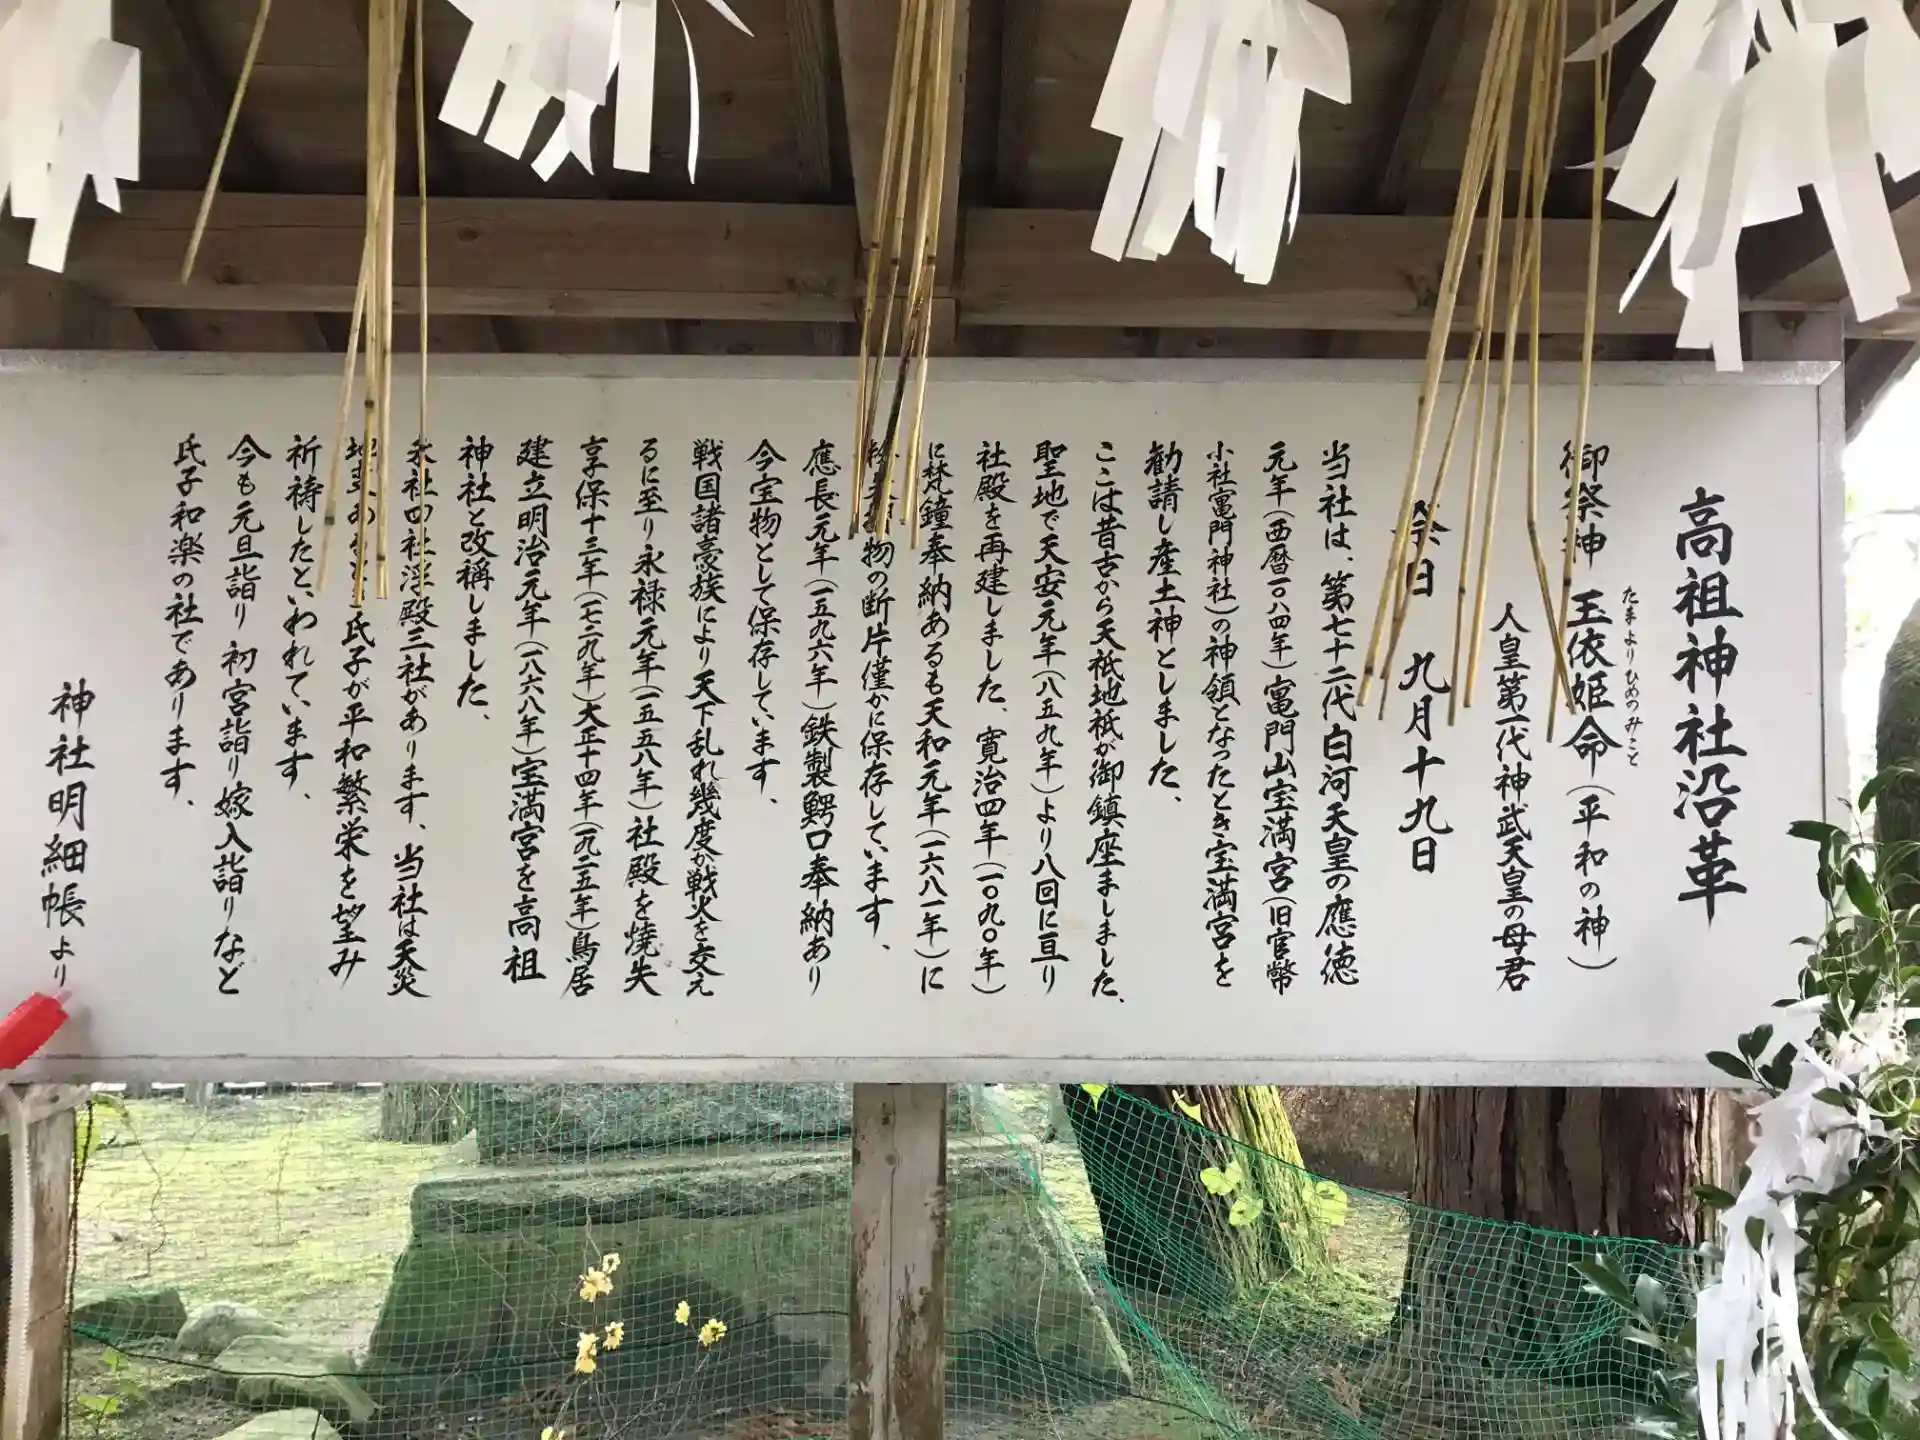 高祖神社沿革
御祭神 玉依姫命(平和の神)
たまよりひめのみこと
人皇第一代神武天皇の母君
祭日 九月十九日
当社は、第七十二代白河天皇の應徳
元年(西暦一〇八四年)竃門山宝満宮(旧官幣
小社竃門神社)の神領となったとき宝満宮を
勧請し産土神としました、
ここは昔古から天祇地祇が御鎮座ましました、
聖地で天安元年(八五九年)より八回に亘り
社殿を再建しました、寛治四年(一〇九〇年)
に梵鐘奉納あるも天和元年(一六八一年)に
物の断片僅かに保存しています、
應長元年(一五九六年)鉄製鰐口奉納あり
今宝物として保存しています、
戦国諸豪族により天下乱れ幾度か戦火を交え
るに至り永禄元年(一五五八年)社殿を焼失
享保十三年(一七二九年)大正十四年(一九二五年)鳥居
建立明治元年(一八六八年)宝満宮を高祖
神社と改稱しました、
末社四社浮殿三社があります、当社は天災
地変あると氏子が平和繁栄を望み
祈祷したといわれています、
今も元旦詣り初宮詣り嫁入詣りなど
氏子和楽の社であります、
神社明細帳より